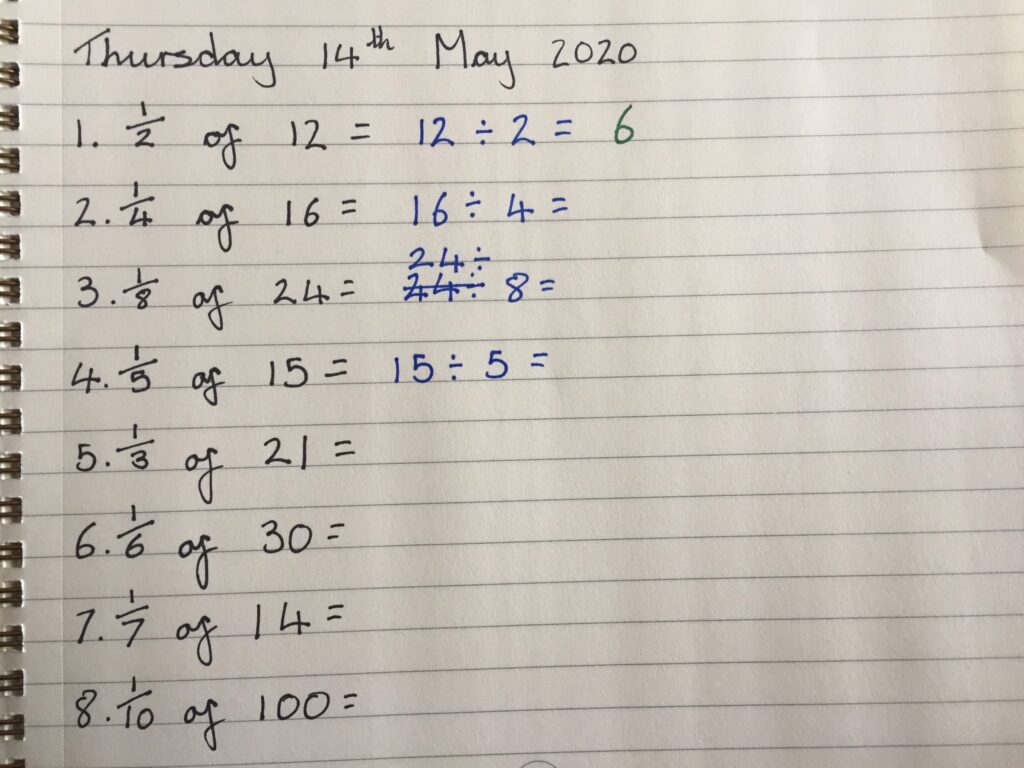 Thursday 14th May 2020
1. 1/2 of 12 = 12 ÷ 2 = 6
2. 1/4 of 16 = 16 ÷ 4 =
24÷
3. 1/8 of 24 = 24÷ 8 =
4. 1/5 of 15 = 15 ÷ 5 =
5. 1/3 of 21 =
6. 1/6 of 30 =
7. 1/7 of 14 =
8. 1/10 of 100 =